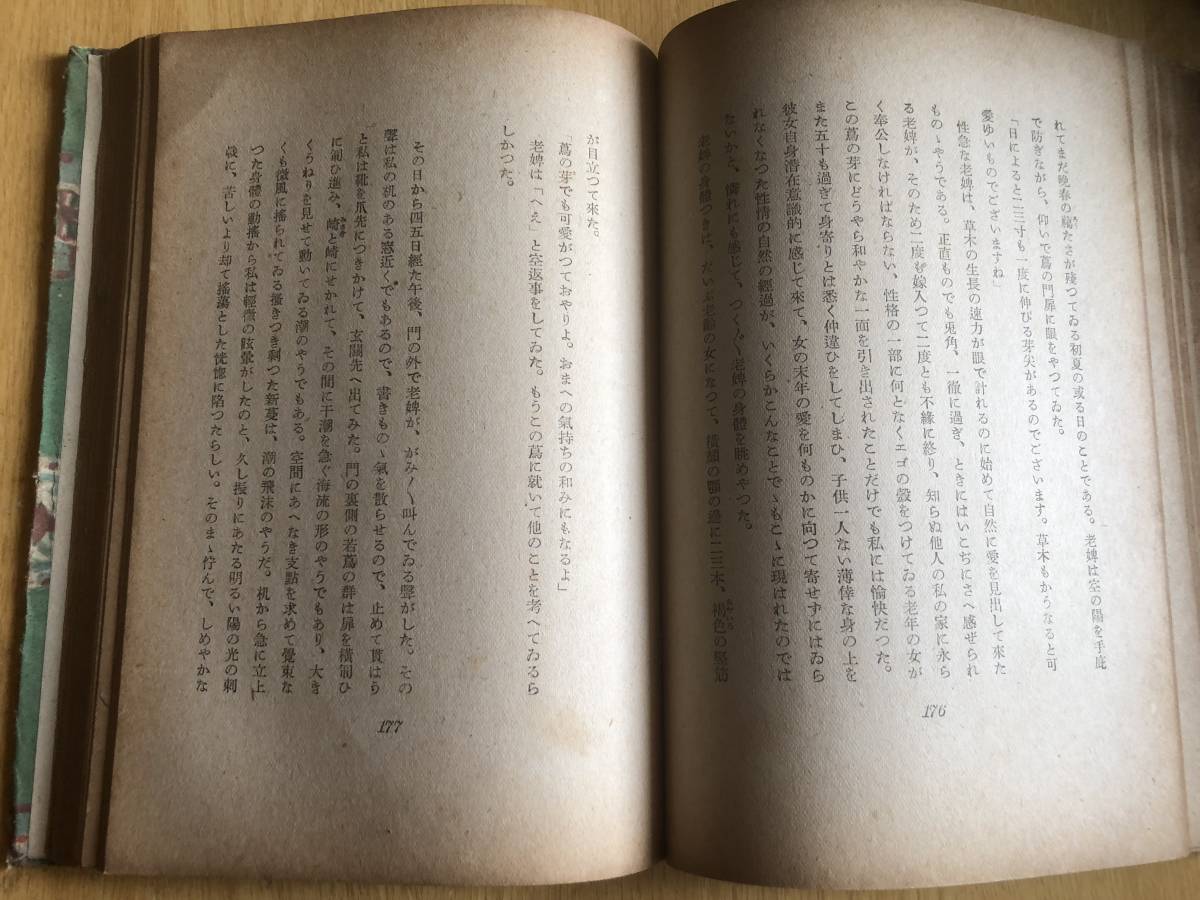 れてまだ晩春の﨟たさが殘つてゐる初夏の或る日のことである。老婢は空の陽を手庇
で防ぎながら、仰いで蔦の門扉に眼をやつてゐた。
「日によると二三寸も一度に伸びる芽尖があるのでございます。草木もかうなると可
愛ゆいものでございますね」
性急な老婢は、草木の生長の速力が眼で計れるのに始めて自然に愛を見出して來た
ものゝやうである。正直ものでも兎角、一徹に過ぎ、ときにはいこぢにさへ感ぜられ
る老婢が、そのため二度も嫁入つて二度とも不緣に終り、知らぬ他人の私の家に永ら
く奉公しなければならない、性格の一部に何となくエゴの殼をつけてゐる老年の女が
この蔦の芽にどうやら和やかな一面を引き出されたことだけでも私には愉快だつた。
また五十も過ぎて身寄りとは悉く仲違ひをしてしまひ、子供一人ない薄倖な身の上を
彼女自身潛在意識的に感じて來て、女の末年の愛を何ものかに向つて寄せずにはゐら
れなくなつた性情の自然の經過が、いくらかこんなことでゝもこゝに現はれたのでは
ないかと、憐れにも感じて、つく〴〵老婢の身體を眺めやつた。
老婢の身體つきは、だいぶ老齡の女になつて、橫顏の顎の邊に二三本、褐色の竪筋
176
が目立つて來た。
「蔦の芽でも可愛がつておやりよ。おまへの氣持ちの和みにもなるよ」
老婢は「へえ」と空返事をしてゐた。もうこの蔦に就いて他のことを考へてゐるら
しかつた。
その日から四五日經た午後、門の外で老婢が、がみ〳〵叫んでゐる聲がした。その
聲は私の机のある窓近くでもあるので、書きものゝ氣を散らせるので、止めて貰はう
と私は靴を爪先につきかけて、玄關先へ出てみた。門の裏側の若蔦の群は扉を橫匍ひ
に匍ひ進み、崎と崎にせかれて、その間に干潮を急ぐ海流の形のやうでもあり、大き
くうねりを見せて動いてゐる潮のやうでもある。空間にあへなき支點を求めて覺束な
くも微風に搖られてゐる搔きつき剩つた新蔓は、潮の飛沫のやうだ。机から急に立上
つた身體の動搖から私は輕微の眩暈がしたのと、久し振りにあたる明るい陽の光の刺
戟に、苦しいより却て搖蕩とした恍惚に陷つたらしい。そのまゝ佇んで、しめやかな
177